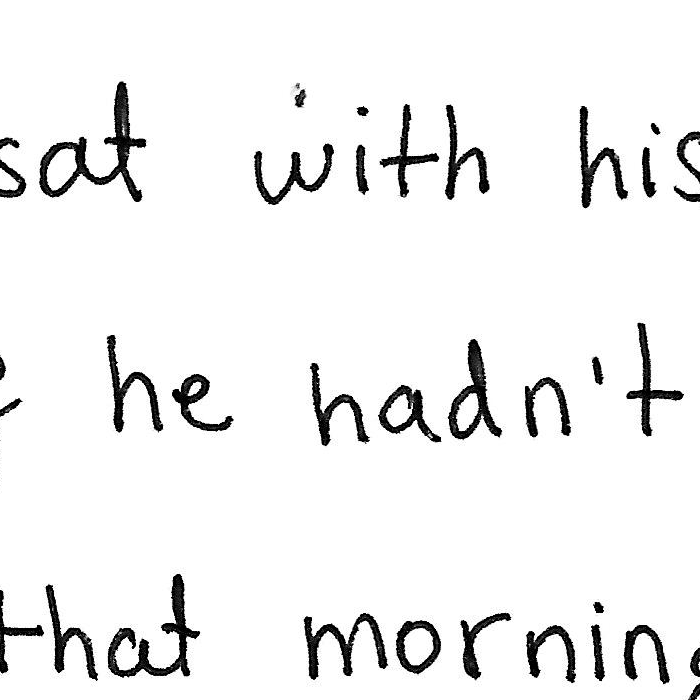 sat with his
he hadn't
that morning